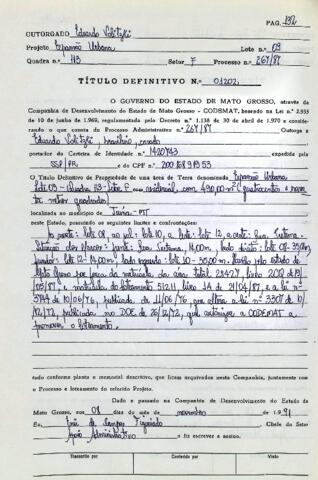 PAG. 192
OUTORGADO Eduardo Volitzki
Projeto Expansão Urbana Lote n.o 09
Quadra n.o 113 Setor F Processo n.o 267/87
TÍTULO DEFINITIVO N.o 01202
O GOVERNO DO ESTADO DE MATO GROSSO, através da
Companhia de Desenvolvimento do Estado de Mato Grosso - CODEMAT, baseado na Lei n.o
de 10 de junho de 1.969, regulamentada pelo Decreto n.o 1.138 de 30 de abril de 1.970 e conside-
rando o que consta do Processo Administrativo n.o 267/87 Outorga a
Eduardo Volitzki, brasileiro, casado
portador da Carteira de Identidade n.o expedida pela
SSP/PR, e do CPF n.o
O Título Definitivo de Propriedade de uma área de Terra denominada Expansão Urbana
Lote 09 - Quadra 113 - Setor F residencial, com 490,00 m² (quatrocentos e noven
ta metros quadrados)
localizada no município de Juína - MT
neste Estado, possuindo os seguintes limites e confrontações:
lote 08, ao sul: lote 10, a leste: lote 12, a oeste: Rua
frente: Rua 14,00m, lado direito: lote 08 - 35,00m,
fundos: lote 12 - 14,00m, lado esquerdo: lote 10 - 35,00m. pelo estado de
Mato Grosso por força da matrícula da área total 28.427, livro
/05/87, e matrícula do loteamento 51211, livro 2A de 21/04/87, e a lei nº
3744 de 10/06/76, publicada de 11/06/76, que altera a lei nº 3307 de
/12/72, publicada no DOE de 26/12/72, que autoriza a CODEMAT a
promover o loteamento.
tudo conforme planta e memorial descritivo, que ficam arquivados nesta Companhia, juntamente com
o Processo e loteamento do referido Projeto.
Dado e passado na Companhia de Desenvolvimento do Estado de
Mato Grosso, aos 08 dias do mês de novembro de 1.991
Eu, José de Campos Figueiredo Chefe do Setor
Apoio Administrativo o fiz escrever e assino.
Transcrito por Conferido por Visto